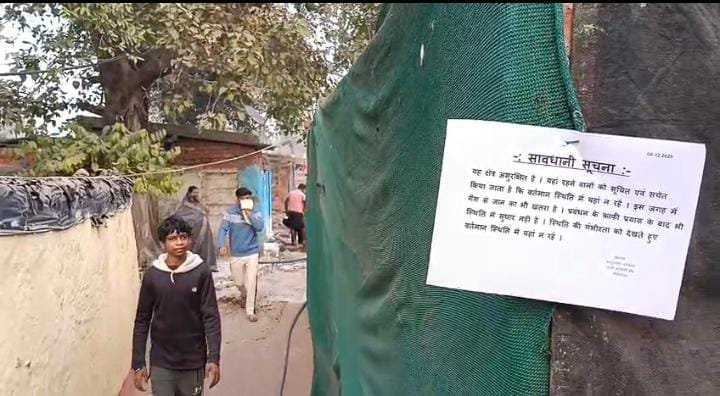 08.12.2025
-: सावधानी सूचना :-
यह क्षेत्र असुरक्षित है । यहां रहने वालों को सूचित एवं सचेत
किया जाता है कि वर्तमान स्थिति में यहां न रहें । इस जगह में
गैस से जान का भी खतरा है । प्रबंधन के काफी प्रयास के बाद भी
स्थिति में सुधार नही है । स्थिति की गंभीरता को देखते हुए
वर्तमान स्थिति में यहां न रहें ।